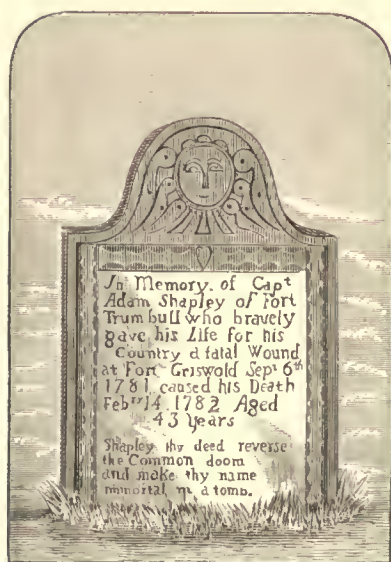 In Memory of Capt
Adam Shapley of Fort
Trumbull who bravely
gave his Life for his
Country a fatal Wound
at Fort Griswold Sept 6th
1781 caused his Death
Febry 14 1782 Aged
43 Years
Shapley thy deed reverse
the Common doom
and make thy name
immortal in a tomb.